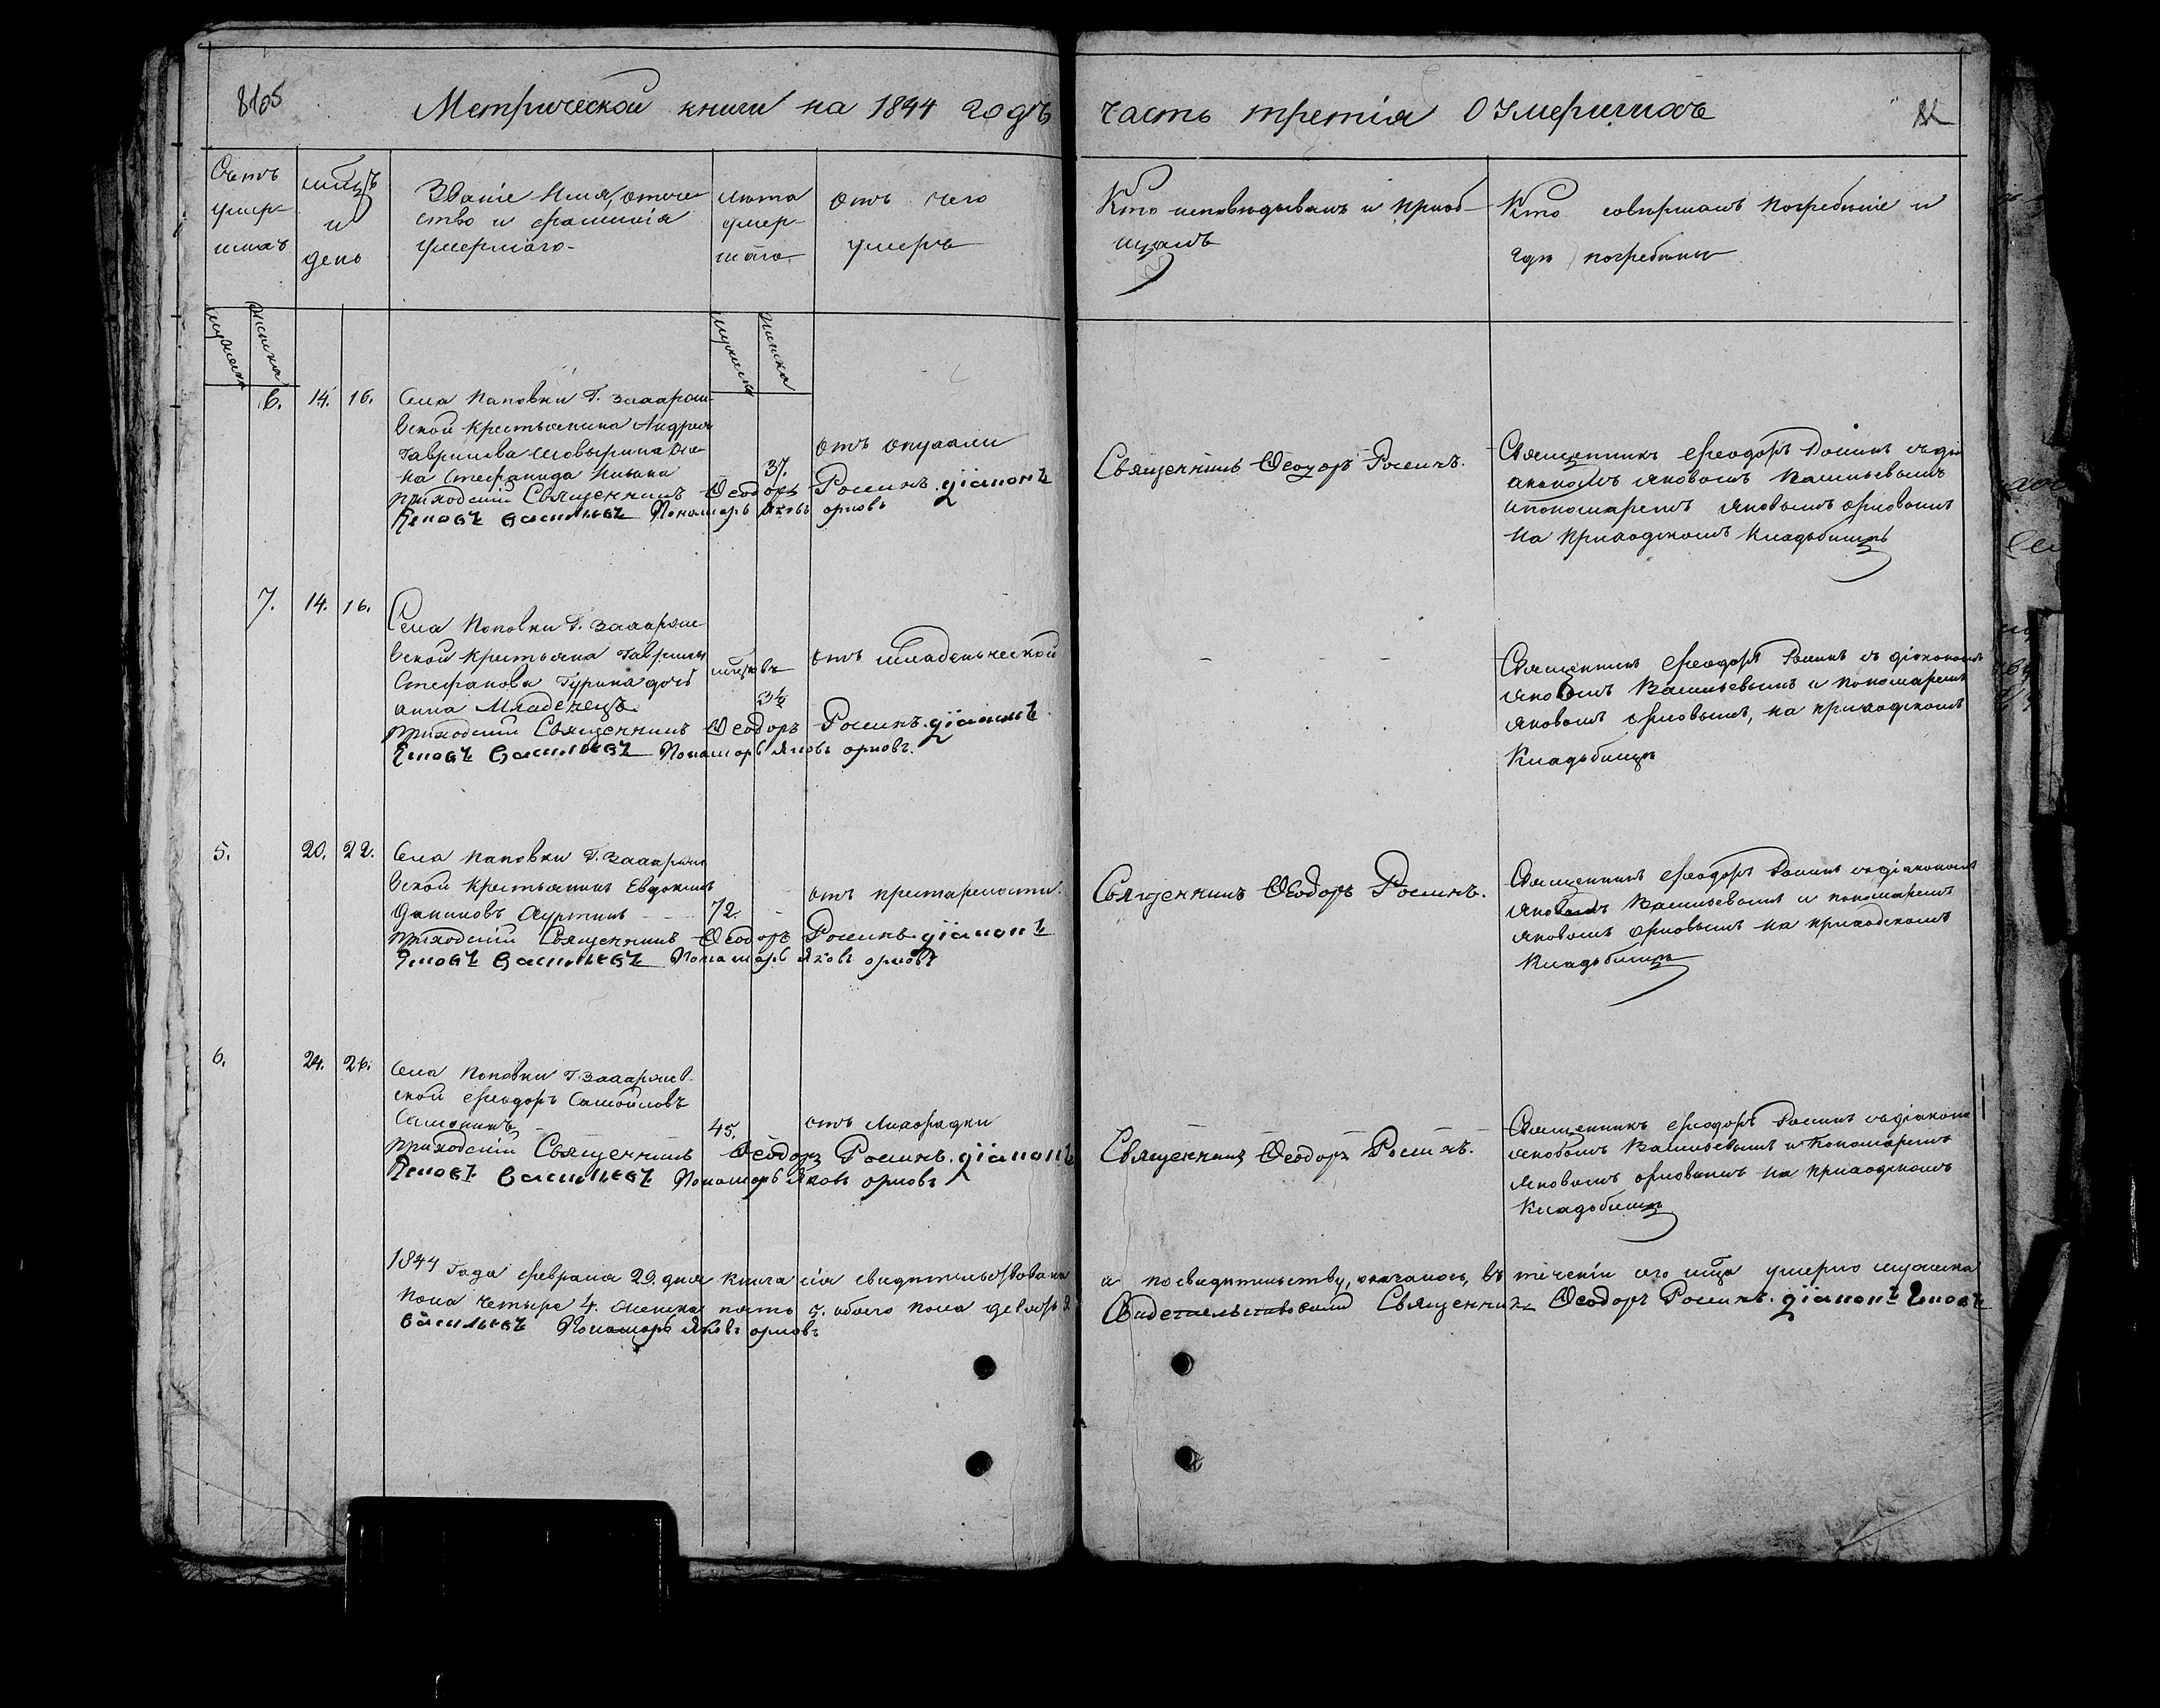 8105
Метрической книги на 1844 годъ
часть третія О Умершихъ
Счетъ
умер-
шихъ
мѣцъ
и
день
Званіе Имя, отече
ство и фамилія
умершаго.
лѣта
умер-
шаго
отъ чего
умеръ
Кто исповѣдывалъ и приоб-
щалъ
Кто совершалъ погребеніе и
гдѣ погребены
мужеска
женска
мужеска
женска
6. 14. 16.
Села Поповки Г.
вской крестьянина Андрея
Гаврилова же
на Стефанида
37.
отъ опухали
приходскій Священникъ Ѳеодоръ Росинъ. діаконъ
Яковъ Васильевъ Пономарь Яковъ орловъ
Священникъ Ѳеодоръ Росинъ.
Священникъ Феодоръ Росинъ съ ді
акономъ Яковомъ Васильевымъ
и пономаремъ Яковымъ орловымъ
на приходскомъ кладьбищѣ
7. 14. 16.
Села Поповки Г.
вской крестьяна Гаврилы
Стефанова Гурина дочь
анна Младенецъ
мѣцовъ
3½
отъ младенческой
приходскій Священникъ Ѳеодоръ Росинъ. діаконъ
Яковъ Васильевъ Пономарь Яковъ орловъ.
Священникъ Феодоръ Росинъ съ діакономъ
Яковомъ Васильевымъ и пономаремъ
Яковомъ орловымъ, на приходскомъ
Кладьбищѣ
5. 20. 22.
Села Поповки Г.
вской крестьянинъ Евдокимъ
Даниловъ
72.
отъ престарелости.
приходскій Священникъ Ѳеодоръ Росинъ. діаконъ
Яковъ Васильевъ Пономарь Яковъ орловъ
Священникъ Ѳеодоръ Росинъ.
Священникъ Феодоръ Росинъ съ діакономъ
Яковомъ Васильевымъ и пономаремъ
Яковомъ Орловымъ на приходскомъ
Кладьбищѣ
6. 24. 26.
Села Поповки Г.
ской Феодоръ Самойловъ
45.
отъ лихорадки
приходскій Священникъ Ѳеодоръ Росинъ. діаконъ
Яковъ Васильевъ Пономарь Яковъ орловъ
Священникъ Ѳеодоръ Росинъ.
Священникъ Феодоръ Росинъ съ діакономъ
Яковомъ Васильевымъ и пономаремъ
Яковомъ орловымъ на приходскомъ
Кладбищѣ
1844 года февраля 29. дня книга сія свидѣтельствована а по свидѣтельству, оказалось, въ теченіи его мѣца умерло мужеска
пола четыре 4. женска пять 5. обоего пола девять 9. Свидетельствовали Священникъ Ѳеодоръ Росинъ. діаконъ Яковъ
Васильевъ Пономарь Яковъ орловъ